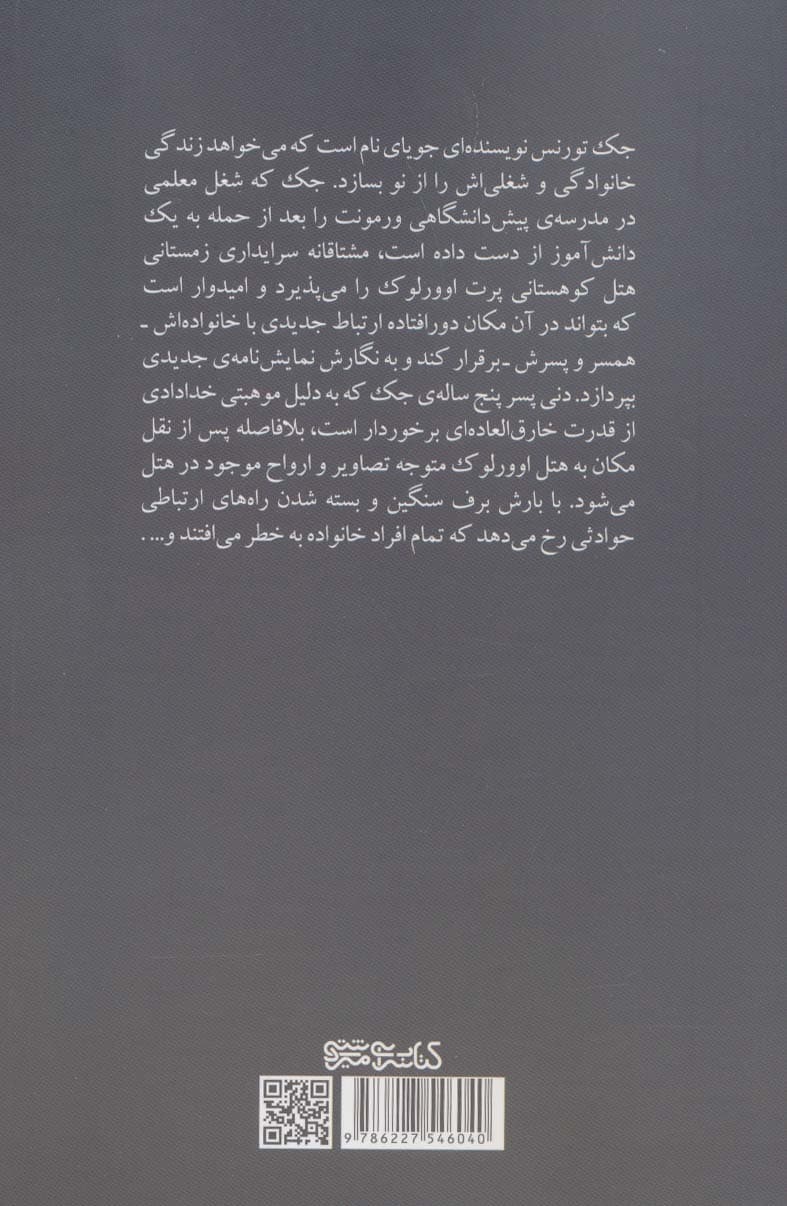 جک تورنس نویسنده‌ای جویای نام است که می‌خواهد زندگی
خانوادگی و شغلی‌اش را از نو بسازد. جک که شغل معلمی
در مدرسه‌ی پیش‌دانشگاهی ورمونت را بعد از حمله به یک
دانش‌آموز از دست داده است، مشتاقانه سرایداری زمستانی
هتل کوهستانی پرت اوورلوک را می‌پذیرد و امیدوار است
که بتواند در آن مکان دورافتاده ارتباط جدیدی با خانواده‌اش -
همسر و پسرش - برقرار کند و به نگارش نمایش‌نامه‌ی جدیدی
بپردازد. دنی پسر پنج ساله‌ی جک که به دلیل موهبتی خدادادی
از قدرت خارق‌العاده‌ای برخوردار است، بلافاصله پس از نقل
مکان به هتل اوورلوک متوجه تصاویر و ارواح موجود در هتل
می‌شود. با بارش برف سنگین و بسته شدن راه‌های ارتباطی
حوادثی رخ می‌دهد که تمام افراد خانواده به خطر می‌افتند و... .
9 786227 546040